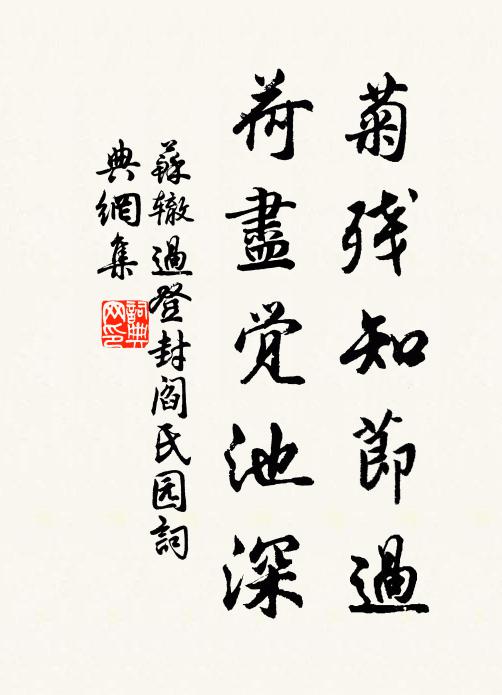 菊残知節過
荷盡觉池深
蘇辙過登封阎氏园詞
典網集
詞典
网印